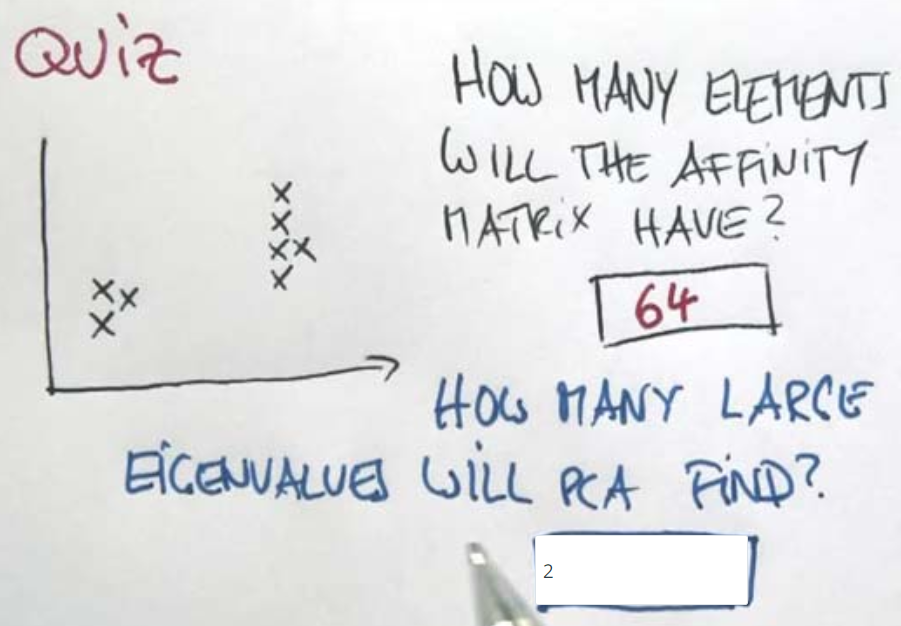 QUiZ
HOW MANY ELEMENTS
WILL THE AFFiNiTY
MATRiX HAVE?
64
HOW MANY LARGE
EiGENVALUES WILL PCA FiND?
2